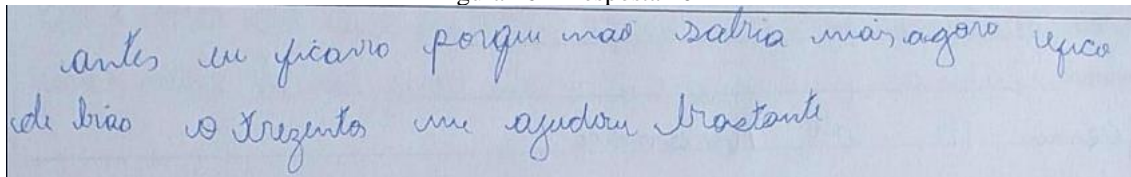 antes eu ficava porque não sabia mais agora
de boa o trezentos me ajudou bastante